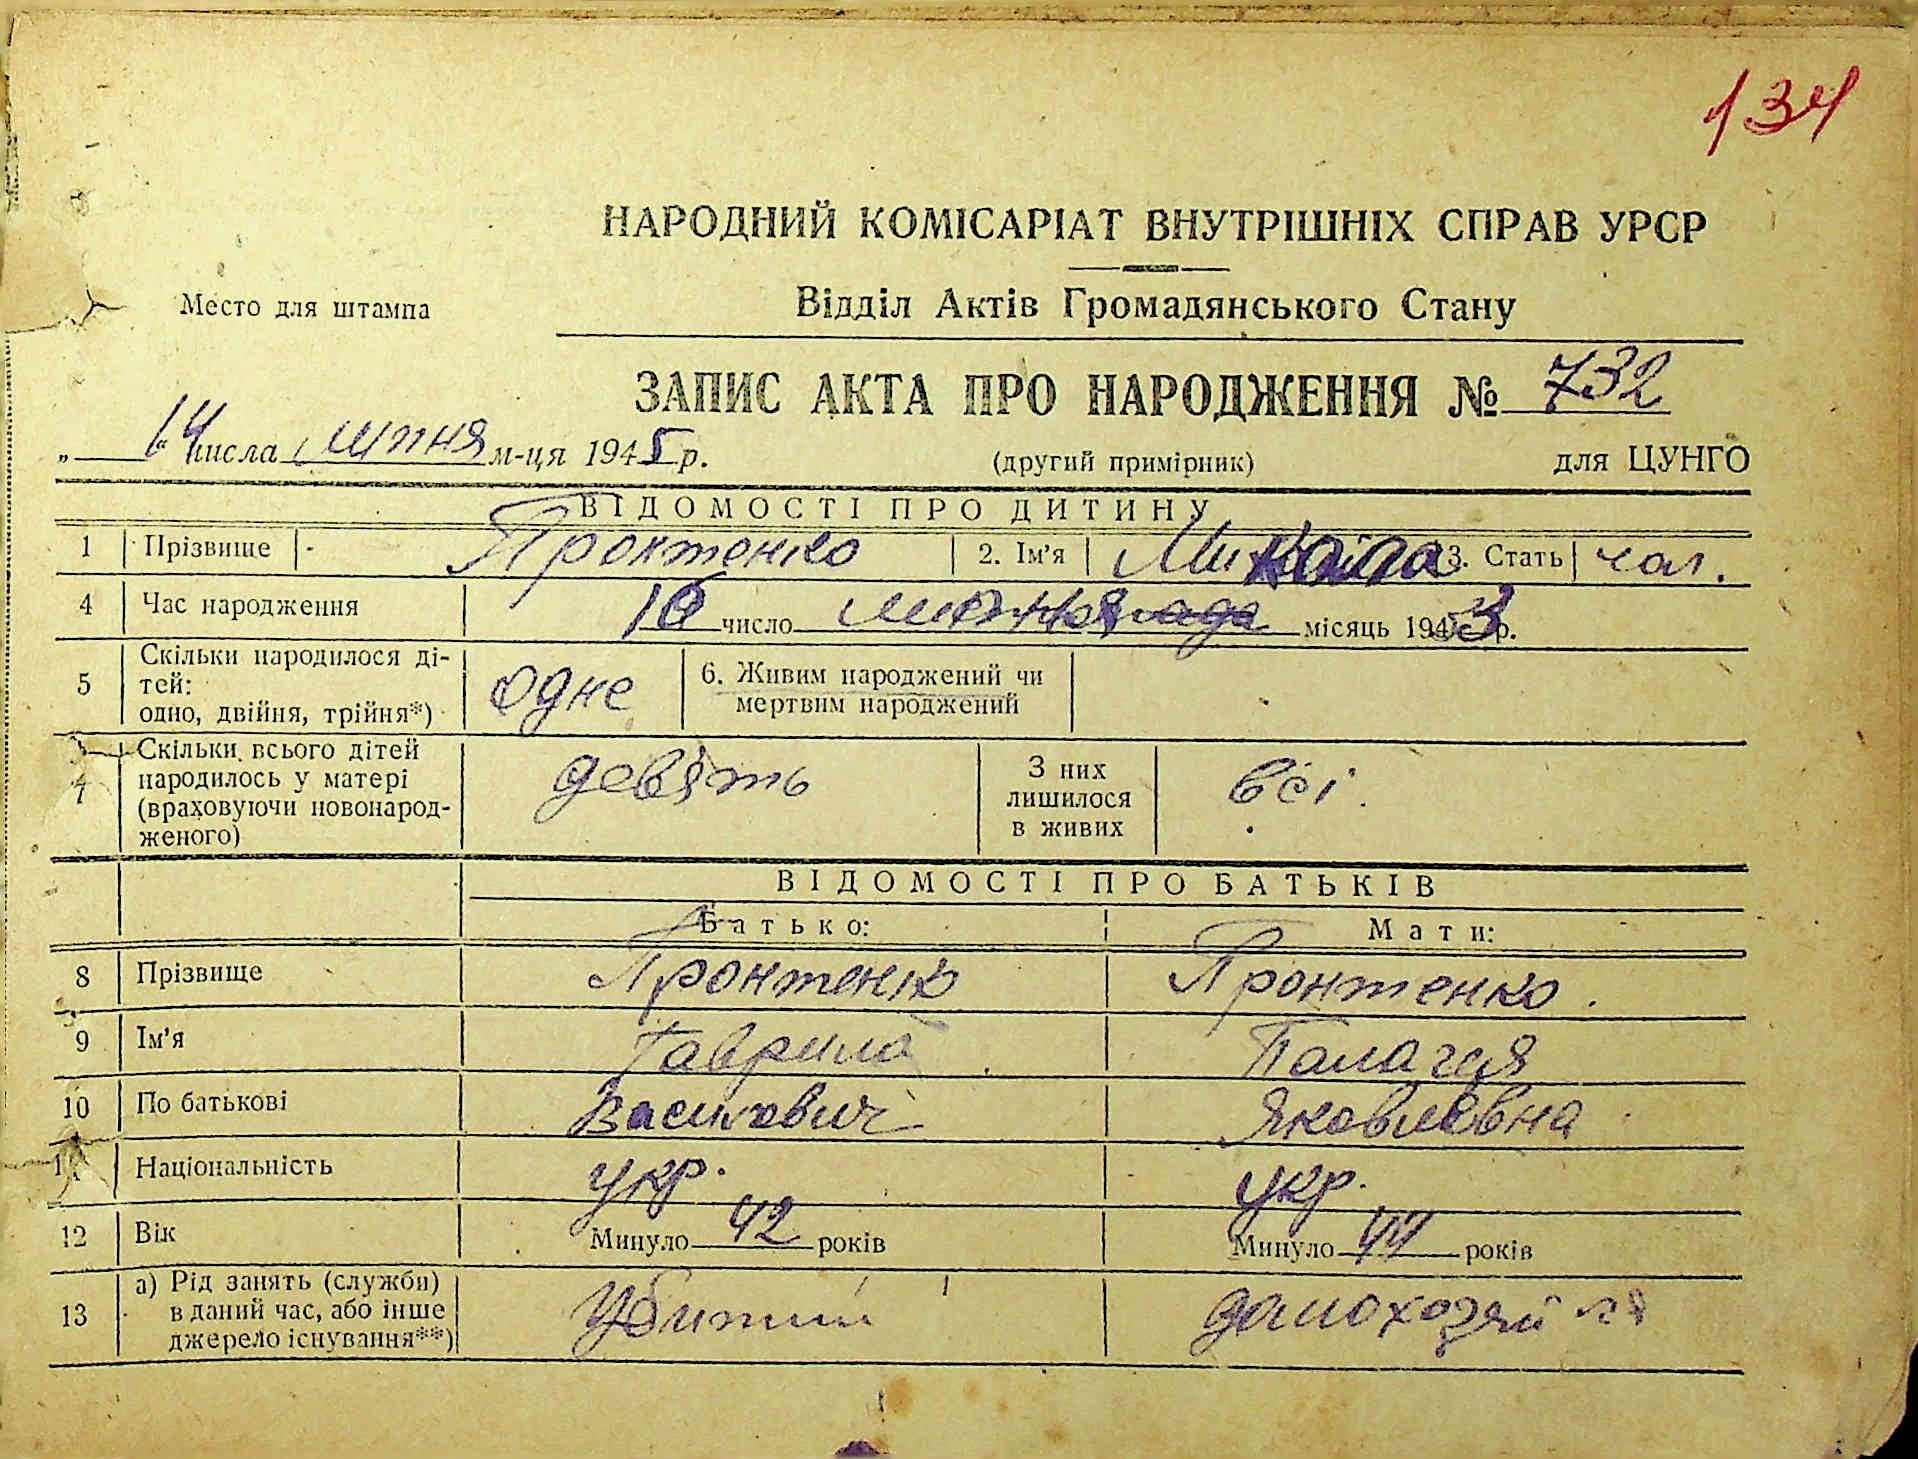 134
НАРОДНИЙ КОМІСАРІАТ ВНУТРІШНІХ СПРАВ УРСР
Место для штампа
Відділ Актів Громадянського Стану
ЗАПИС АКТА ПРО НАРОДЖЕННЯ № 732
„ 14 " числа липня м-ця 1945 р.
(другий примірник) для ЦУНГО
ВІДОМОСТІ ПРО ДИТИНУ
1 Прізвище Пронтенко 2. Ім'я Микола 3. Стать чол.
4 Час народження 16 число місяць 1943 р.
5 Скільки народилося ді-
тей:
одно, двійня, трійня*) одне 6. Живим народжений чи
мертвим народжений
7 Скільки всього дітей
народилось у матері
(враховуючи новонарод-
женого) девять З них
лишилося
в живих всі.
ВІДОМОСТІ ПРО БАТЬКІВ
Батько: Мати:
8 Прізвище Пронтенко Пронтенко.
9 Ім'я Гаврило Палагея
10 По батькові Василович Яковлевна
11 Національність укр. укр.
12 Вік Минуло 42 років Минуло 44 років
13 а) Рід занять (служби)
в даний час, або інше
джерело існування**) Убитий домохозяйка